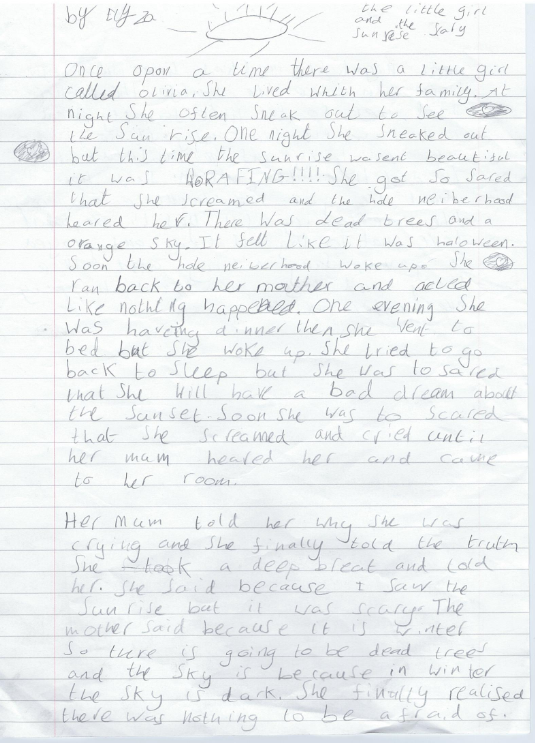 the little girl
by
and the
sunrise
Once opon a time there was a little girl
called olivia. She lived whith her family. At
night she often sneak out to see
the sun rise. One night she sneaked out
but this time the sunrise wasent beautiful
it was HORAFING!!!! She got so sared
that she screamed and the hole neiberhood
heared her. There was dead trees and a
orange sky. It fell like it was haloween.
Soon the hole neiberhood woke up. She
ran back to her mother and acted
like nothing happened. One evening she
was haveing dinner then she went to
bed but she woke up. She tried to go
back to sleep but she was to sared
that she will have a bad dream about
the sunset. Soon she was to scared
that she screamed and cried until
her mum heared her and came
to her room.
Her mum told her why she was
crying and she finally told the truth
She took a deep breat and told
her. She said because I saw the
sun rise but it was scary. The
mother said because it is winter
so there is going to be dead trees
and the sky is because in winter
the sky is dark. She finally realised
there was nothing to be afraid of.